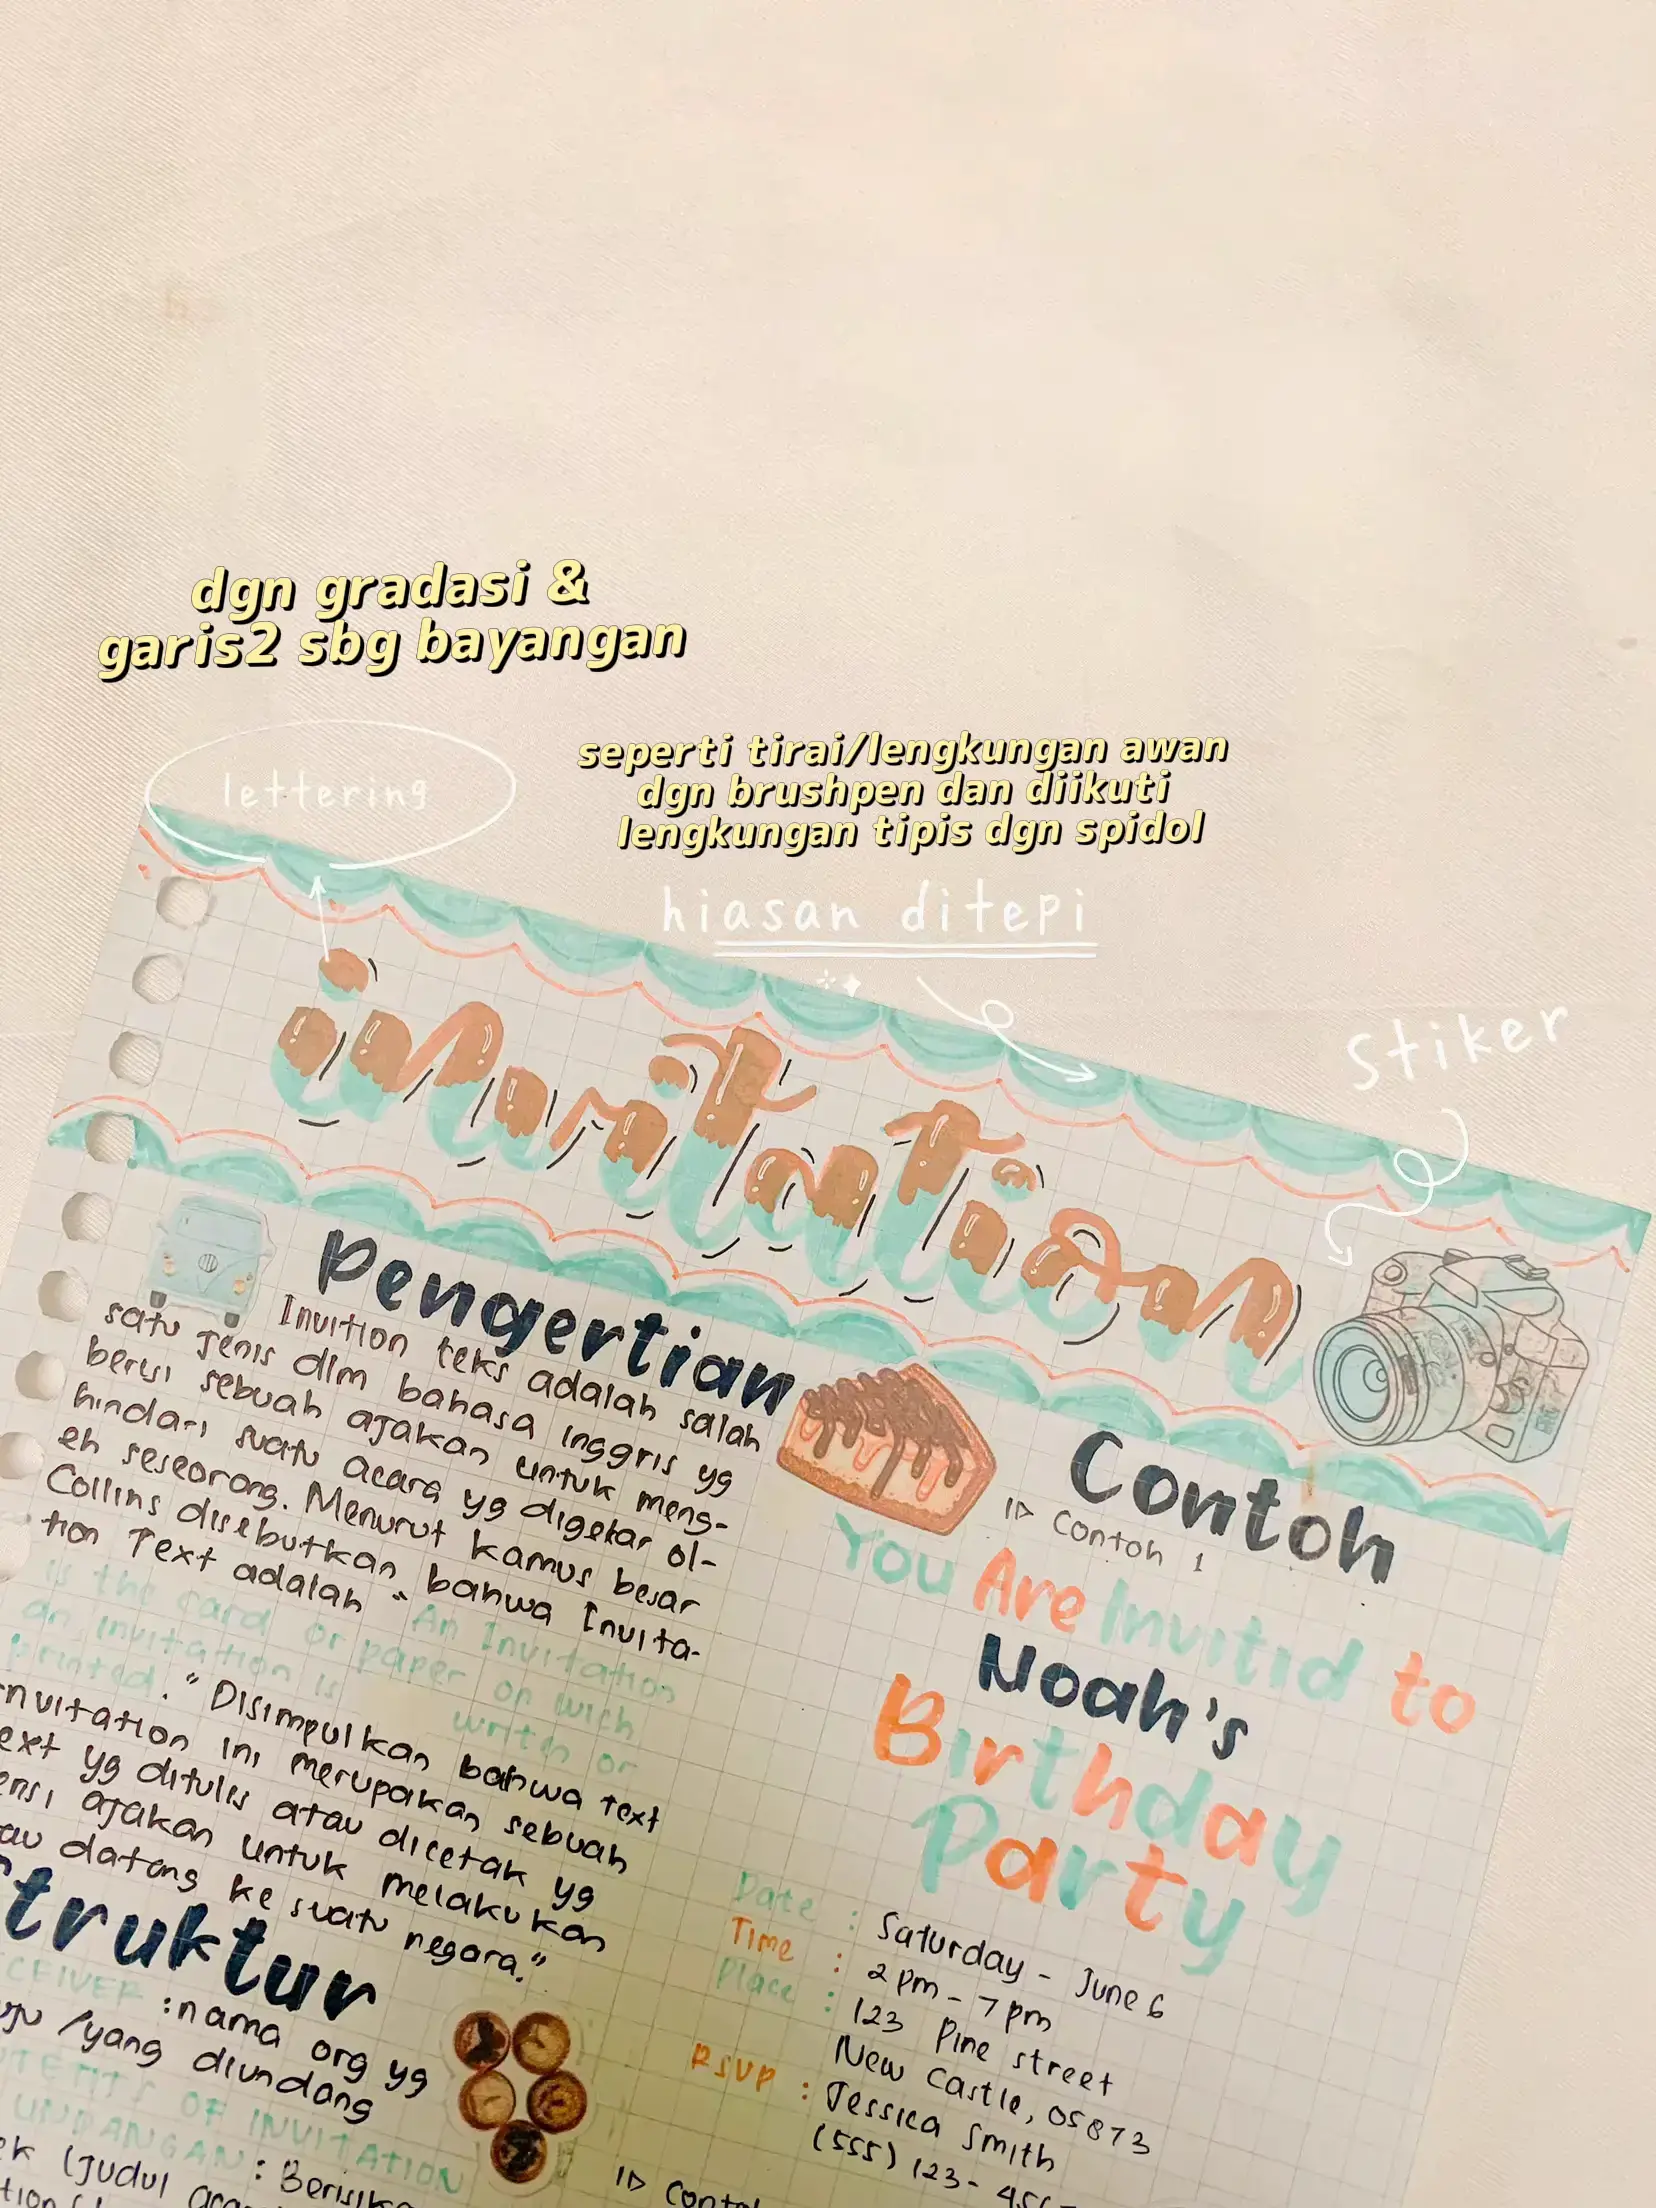 dgn gradasi &
garis2 sbg bayangan
lettering
seperti tirai/lengkungan awan
dgn brushpen dan diikuti
lengkungan tipis dgn spidol
hiasan ditepi
Stiker
invitation
Pengertian
Invition teks adalah salah
satu jenis dlm bahasa inggris yg
berisi sebuah ajakan untuk meng-
hindari suatu acara yg digelar ol-
eh seseorang. Menurut kamus besar
Collins disebutkan bahwa Invita-
tion Text adalah " An Invitation
is the card or paper on wich
an invitation is writen or
printed." Disimpulkan bahwa text
nvitation ini merupakan sebuah
ext yg ditulis atau dicetak yg
ensi ajakan untuk melakukan
au datang ke suatu negara."
truktur
CEIVER : nama org yg
uju /yang diundang
OF INVITATION
UNDANGAN : Berisik
ek (judul acar
Contoh
1▷ Contoh 1
You Are Invitid to
Noah's
Birthday
Party
Date : Saturday - June 6
Time : 2 pm - 7 pm
Place : 123 Pine street
New Castle, 05873
RSVP : Jessica Smith
(555) 123-
1▷ Contoh